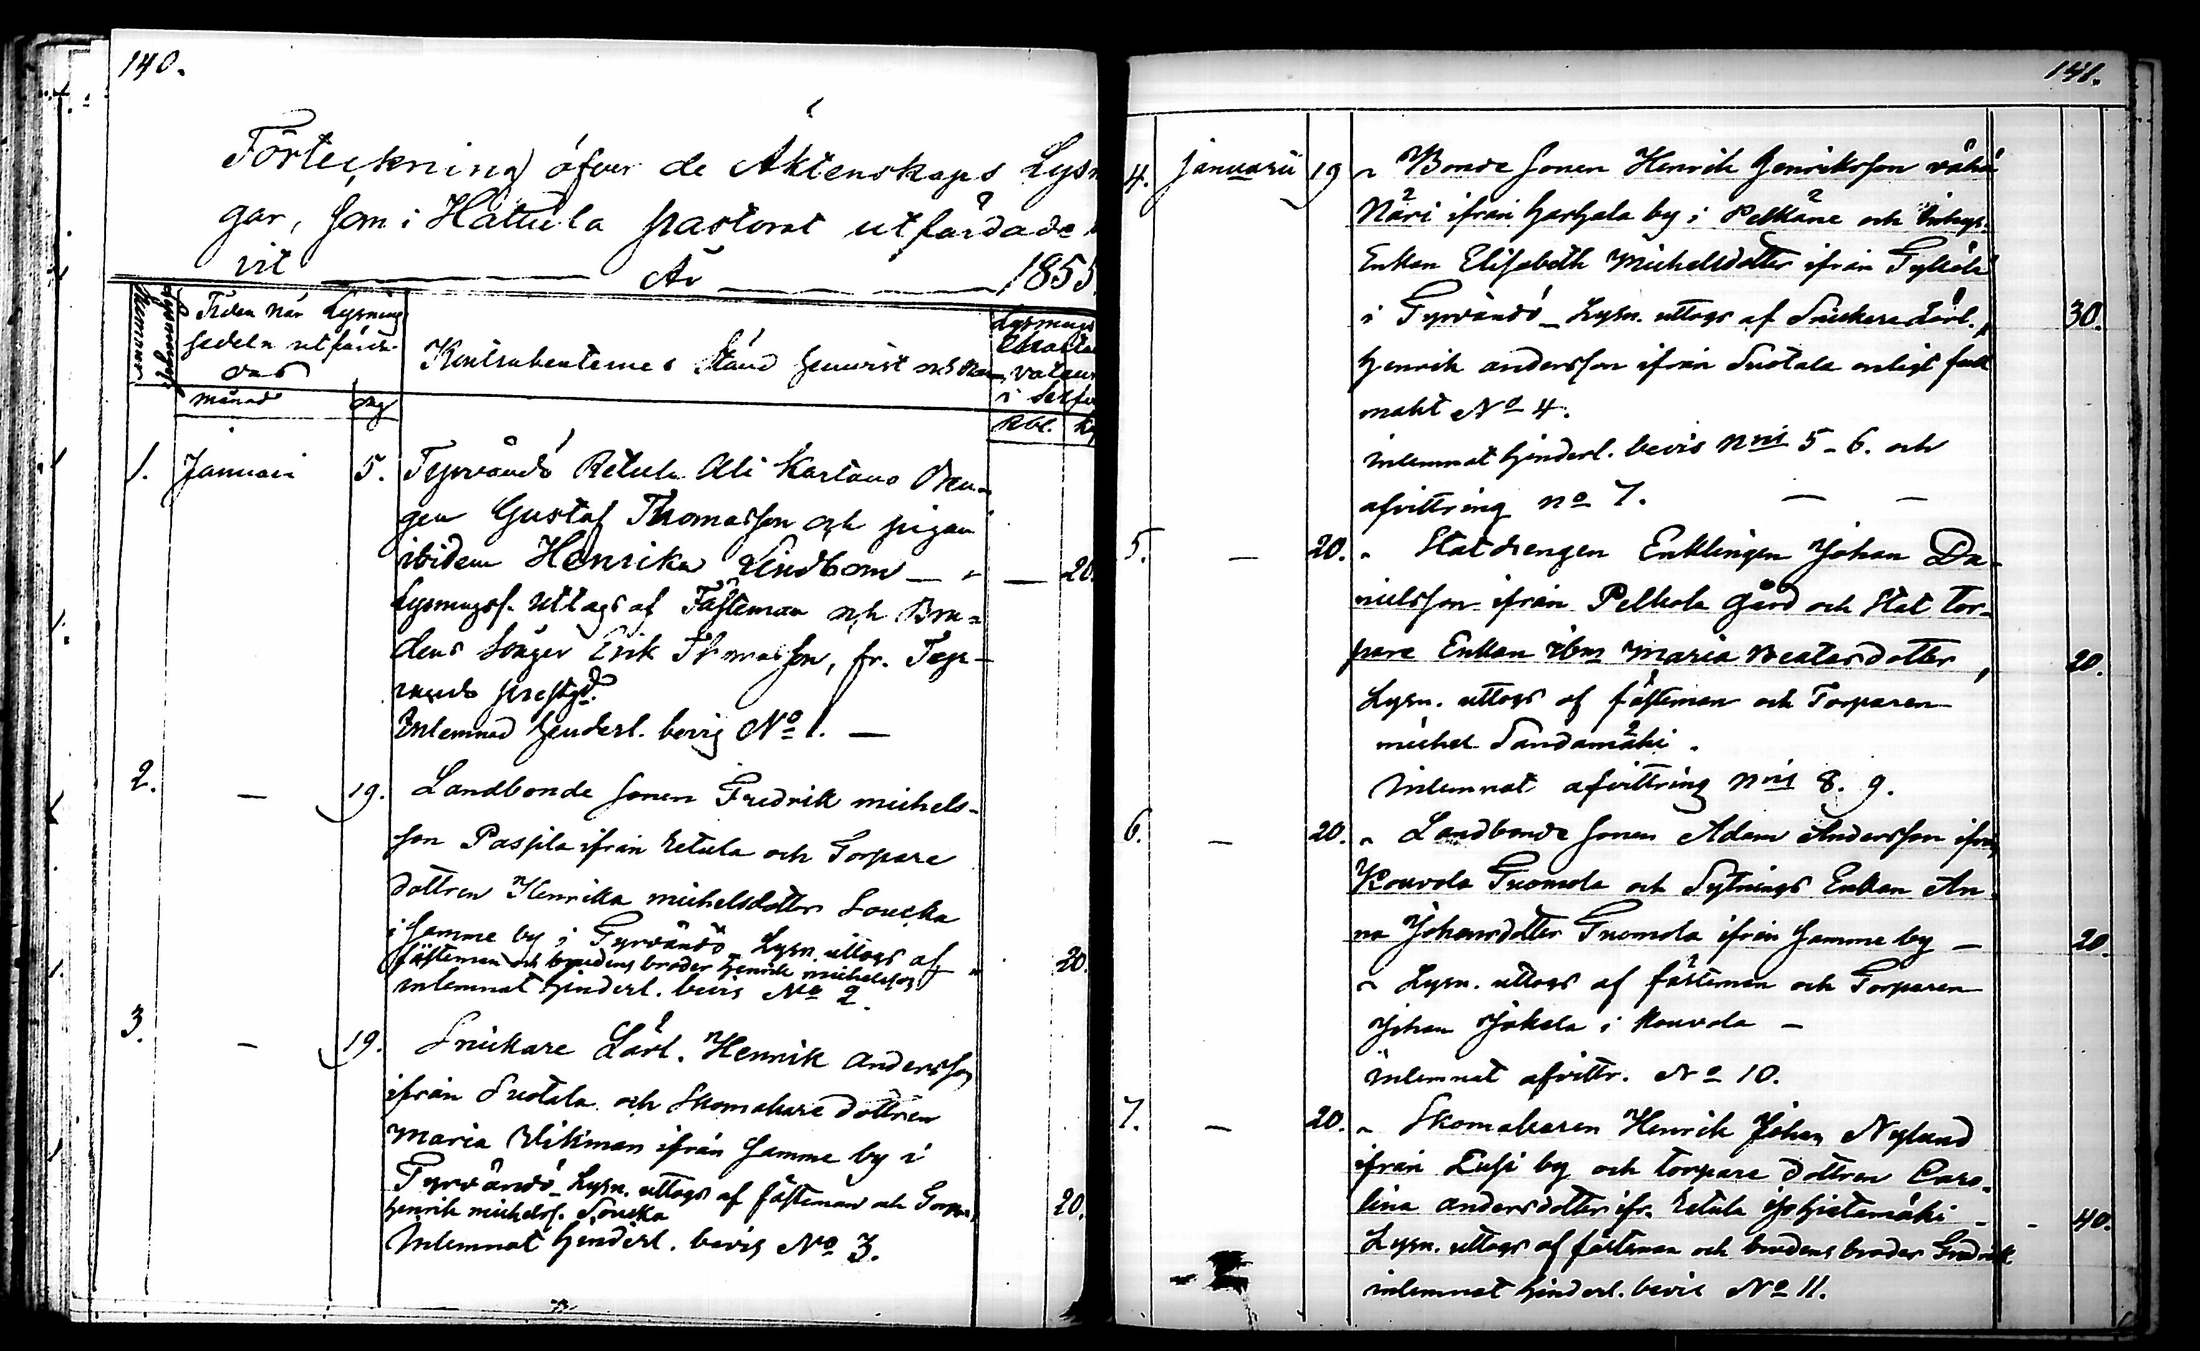 140.
Förteckning öfver de Äktenskaps Lysn
gar, som i Hattula pastorat utfärdade
vit
År 1855.
Lysnings Nummer
Tiden när Lysnings
sedeln utfärda
des
Kontrahenternes Stånd hemvist och Nam
Lysnings
i
månad
dag
Rbl. k
1. Januari 5. Tyrvändö Retula Ali Kartano Dren-
gen Gustaf Thomasson och pigan
ibidem Henrika Lindbom — " — 20.
Lysningss. uttogs af Fästeman och Bru-
dens Erik Thomasson, fr. Tyr-
vändö prestgd.
Inlemnad hinderl. bevis No 1. —
2. — 19. Landbonde sonen Fredrik Michels-
son Paspila ifrån Retula och Torpare
dottren Henrika Michelsdotter Soucka
i samme by i Tyrvändö. Lysn. uttogs af
fästeman och brudens broder Henrik Michelsson " 20.
inlemnat hinderl. bevis No 2.
3. — 19. Snickare Lärl. Henrik Andersson
ifrån Suotala och Skomakare dottren
Maria Wikman ifrån samme by i
Tyrvändö. Lysn. uttogs af fästeman och Torpar,
Henrik Michelss. Soucka 20.
Inlemnat hinderl. bevis No 3.
141.
4. Januarii 19 " Bonde sonen Henrik Henriksson Vähä
Näri ifrån Harhala by i Pelkäne och Inhys.
Enkan Elisabeth Michelsdotter ifrån
i Tyrvändö – Lysn. uttogs af Snickare Lärl. " 30.
Henrik Andersson ifrån Suotala enligt full
makt No 4.
inlemnat hinderl. bevis Nris 5 – 6. och
afvittring no 7. — —
5. — 20. " Statdrengen Enklingen Johan Da-
nielsson ifrån Pelkola gård och Stat Tor-
pare Enkan ibm Maria Beatasdotter , 20.
Lysn. uttogs af fästeman och Torparen
Michel Sandamäki.
Inlemnat afvittring Nris 8. 9.
6. — 20. " Landbonde sonen Adam Andersson ifrån
Kouvola Tuomola och Sytnings Enkan An-
na Johansdotter Tuomola ifrån samme by — 20.
" Lysn. uttogs af fästeman och Torparen
Johan Jokela i Kouvola —
inlemnat afvittr. No 10.
7. — 20. " Skomakaren Henrik Johan Nylund
ifrån Lusi by och torpare dottren Caro-
lina Andersdotter ifr. Retula Isohietamäki – - 40.
Lysn. uttogs af fästeman och brudens broder Fredrik
inlemnat hinderl. bevis No 11.